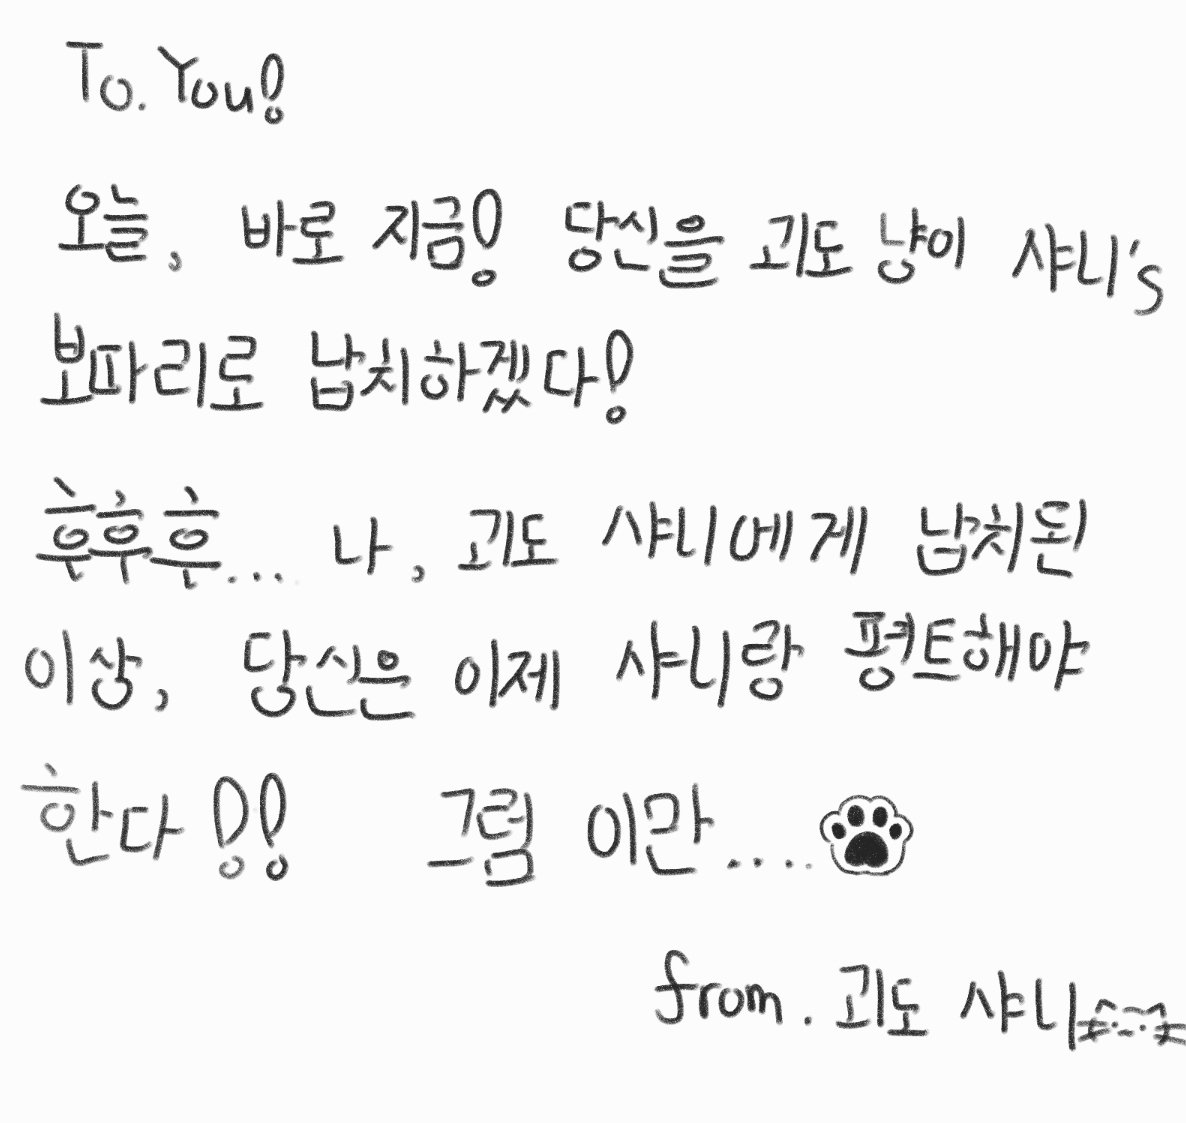 To. You!
오늘, 바로 지금! 당신을 괴도 냥이 샤니's
뽀파리로 납치하겠다!
후후후... 나, 괴도 샤니에게 납치된
이상, 당신은 이제 샤니랑 평트해야
한다!! 그럼 이만....
from. 괴도 샤니